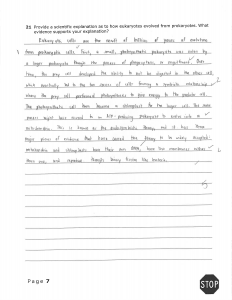 31 Provide a scientific explanation as to how eukaryotes evolved from prokaryotes. What
evidence supports your explanation?
Eukaryotic cells are the result of billions of years of evolution
from prokaryotic cells. First, a small, photosynthetic prokaryote was eaten by
a larger prokaryote through the process of phagocytosis or engulfment. Over
time, the prey cell developed the ability to not be digested in the other cell
which eventually led to the two cells forming a symbiotic relationship
where the prey cell performed photosynthesis to give energy to the predator cell.
The photosynthetic cell then became a chloroplast for the larger cell. The same
process might have occurred to an ATP producing prokaryote to evolve into a
mitochondria. This is known as the endosymbiotic theory and it has three
major pieces of evidence that have caused this theory to be widely accepted.
mitochondria and chloroplasts have their own DNA, have two membranes
their own, and reproduce through binary fission like bacteria.
5
Page 7
STOP